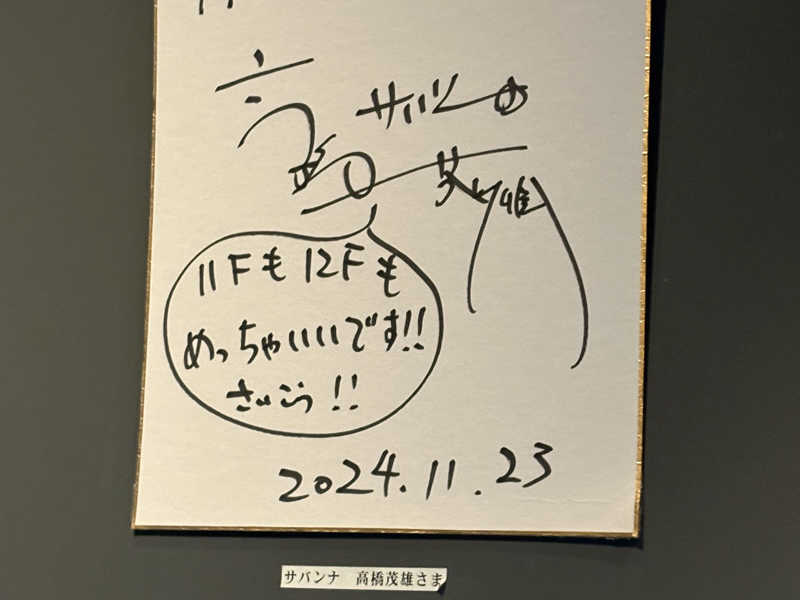 サバンナ
高
茂雄
11Fも12Fも
めっちゃいいです!!
さいこう!!
2024.11.23
サバンナ 高橋茂雄さま